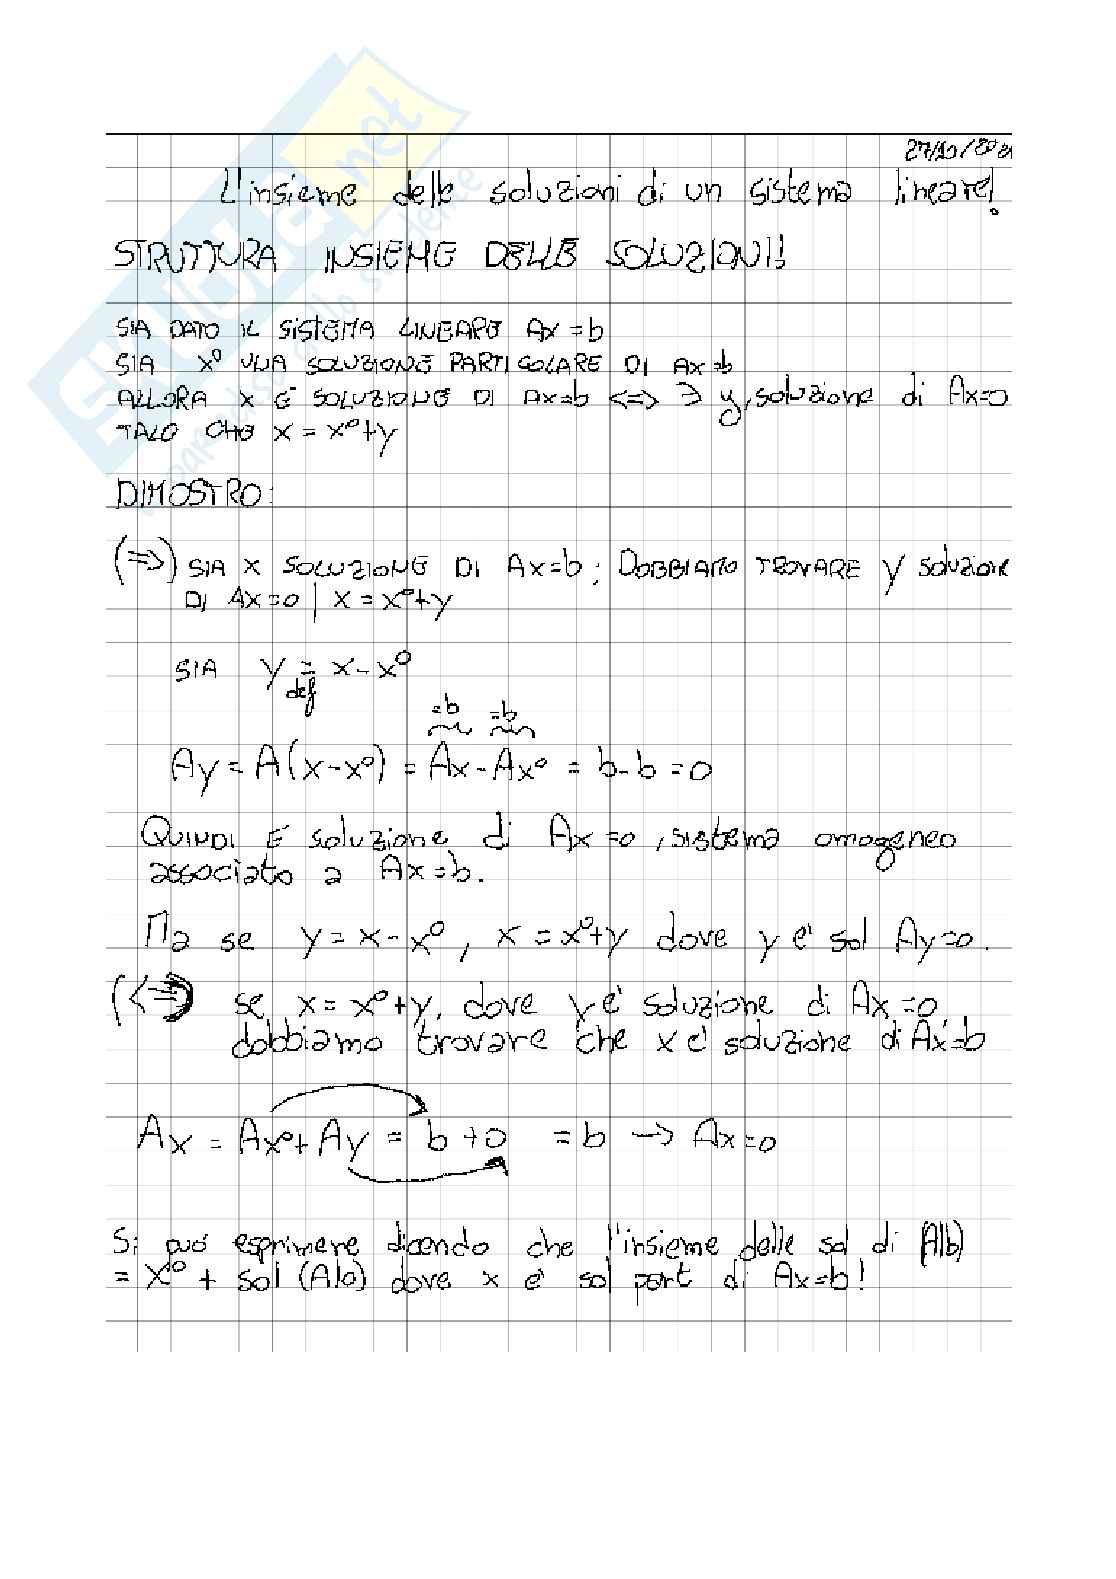 27/10/202
L'insieme delle soluzioni di un sistema lineare!
STRUTTURA INSIEME DELLE SOLUZIONI!
SIA DATO IL SISTEMA LINEARE Ax=b
SIA x⁰ UNA SOLUZIONE PARTICOLARE DI Ax=b
ALLORA x È SOLUZIONE DI Ax=b <=> ∃ y, soluzione di Ax=0
TALO CHE x = x⁰+y
DIMOSTRO:
(=>) SIA x SOLUZIONE DI Ax=b ; DOBBIAMO TROVARE y soluzione
DI Ax=0 | x = x⁰+y
SIA y = x-x⁰
def
=b =b
Ay = A(x-x⁰) = Ax-Ax⁰ = b-b = 0
QUINDI È soluzione di Ax=0, sistema omogeneo
associato a Ax=b.
Ma se y=x-x⁰, x=x⁰+y dove y è sol Ay=0.
(<=) se x=x⁰+y, dove y è soluzione di Ax=0
dobbiamo trovare che x è soluzione di Ax=b
Ax = Ax⁰+Ay = b+0 = b → Ax=0
Si può esprimere dicendo che l'insieme delle sol di (A|b)
= x⁰ + sol (A|0) dove x è sol part di Ax=b!
SKUOLA.net